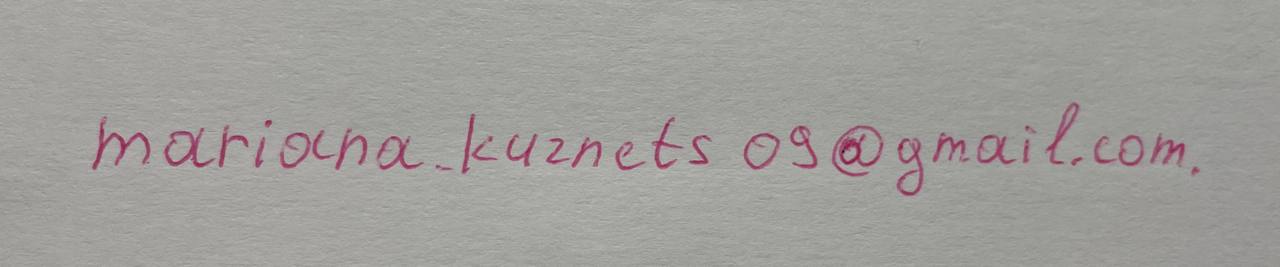 mariana_kuznets 09@gmail.com.